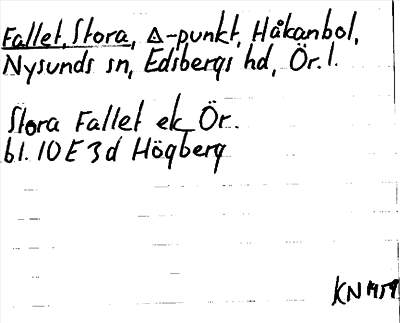 Fallet, Stora, Δ-punkt, Håkanbol,
Nysunds sn, Edsbergs hd, Ör. l.
Stora Fallet ek Ör.
bl. 10 E 3 d Högberg
KN 1959